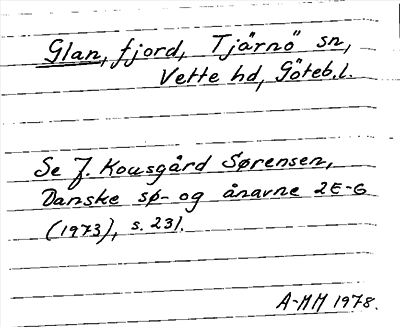 Glan, fjord, Tjärnö sn,
Vette hd, Göteb.l.
Se J. Kousgård Sørensen,
Danske sø- og ånavne 2E-G
(1973), s. 231.
A-MM 1978.